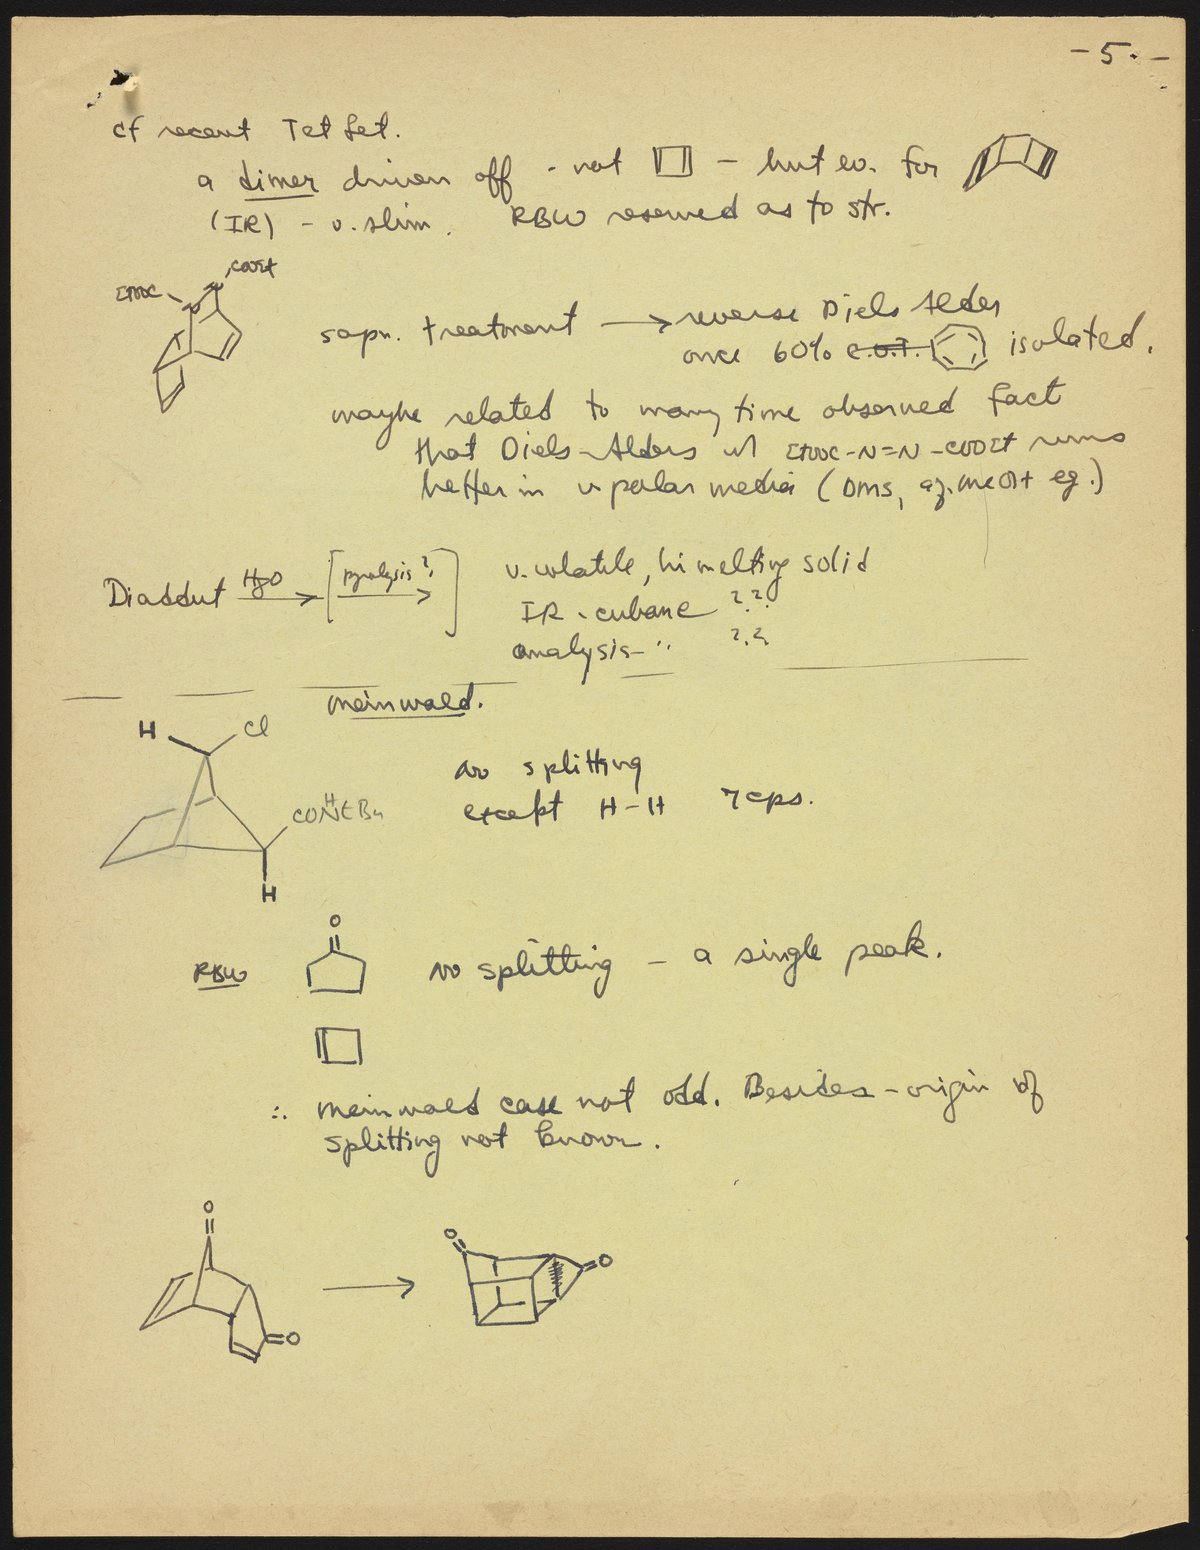 - 5. -
cf recent Tet Let.
a dimer driven off - not — but ev. for
(IR) - v. slim. RBW reserved as to str.
COOEt
EtOOC - N N
sapn. treatment → reverse Diels Alder
once 60% C.O.T. isolated.
maybe related to many time observed fact
that Diels-Alders w/ EtOOC-N=N-COOEt runs
better in v polar media (DMS, aq. MeOH eg.)
Diadduct HgO → [pyrolysis? →] v. volatile, hi melting solid
IR - cubane ??
analysis - " ??
Meinwald.
H Cl
no splitting
except H-H 7 cps.
CONHtBu
H
O
RBW no splitting - a single peak.
∴ Meinwald case not odd. Besides - origin of
splitting not known.
O → O O
O